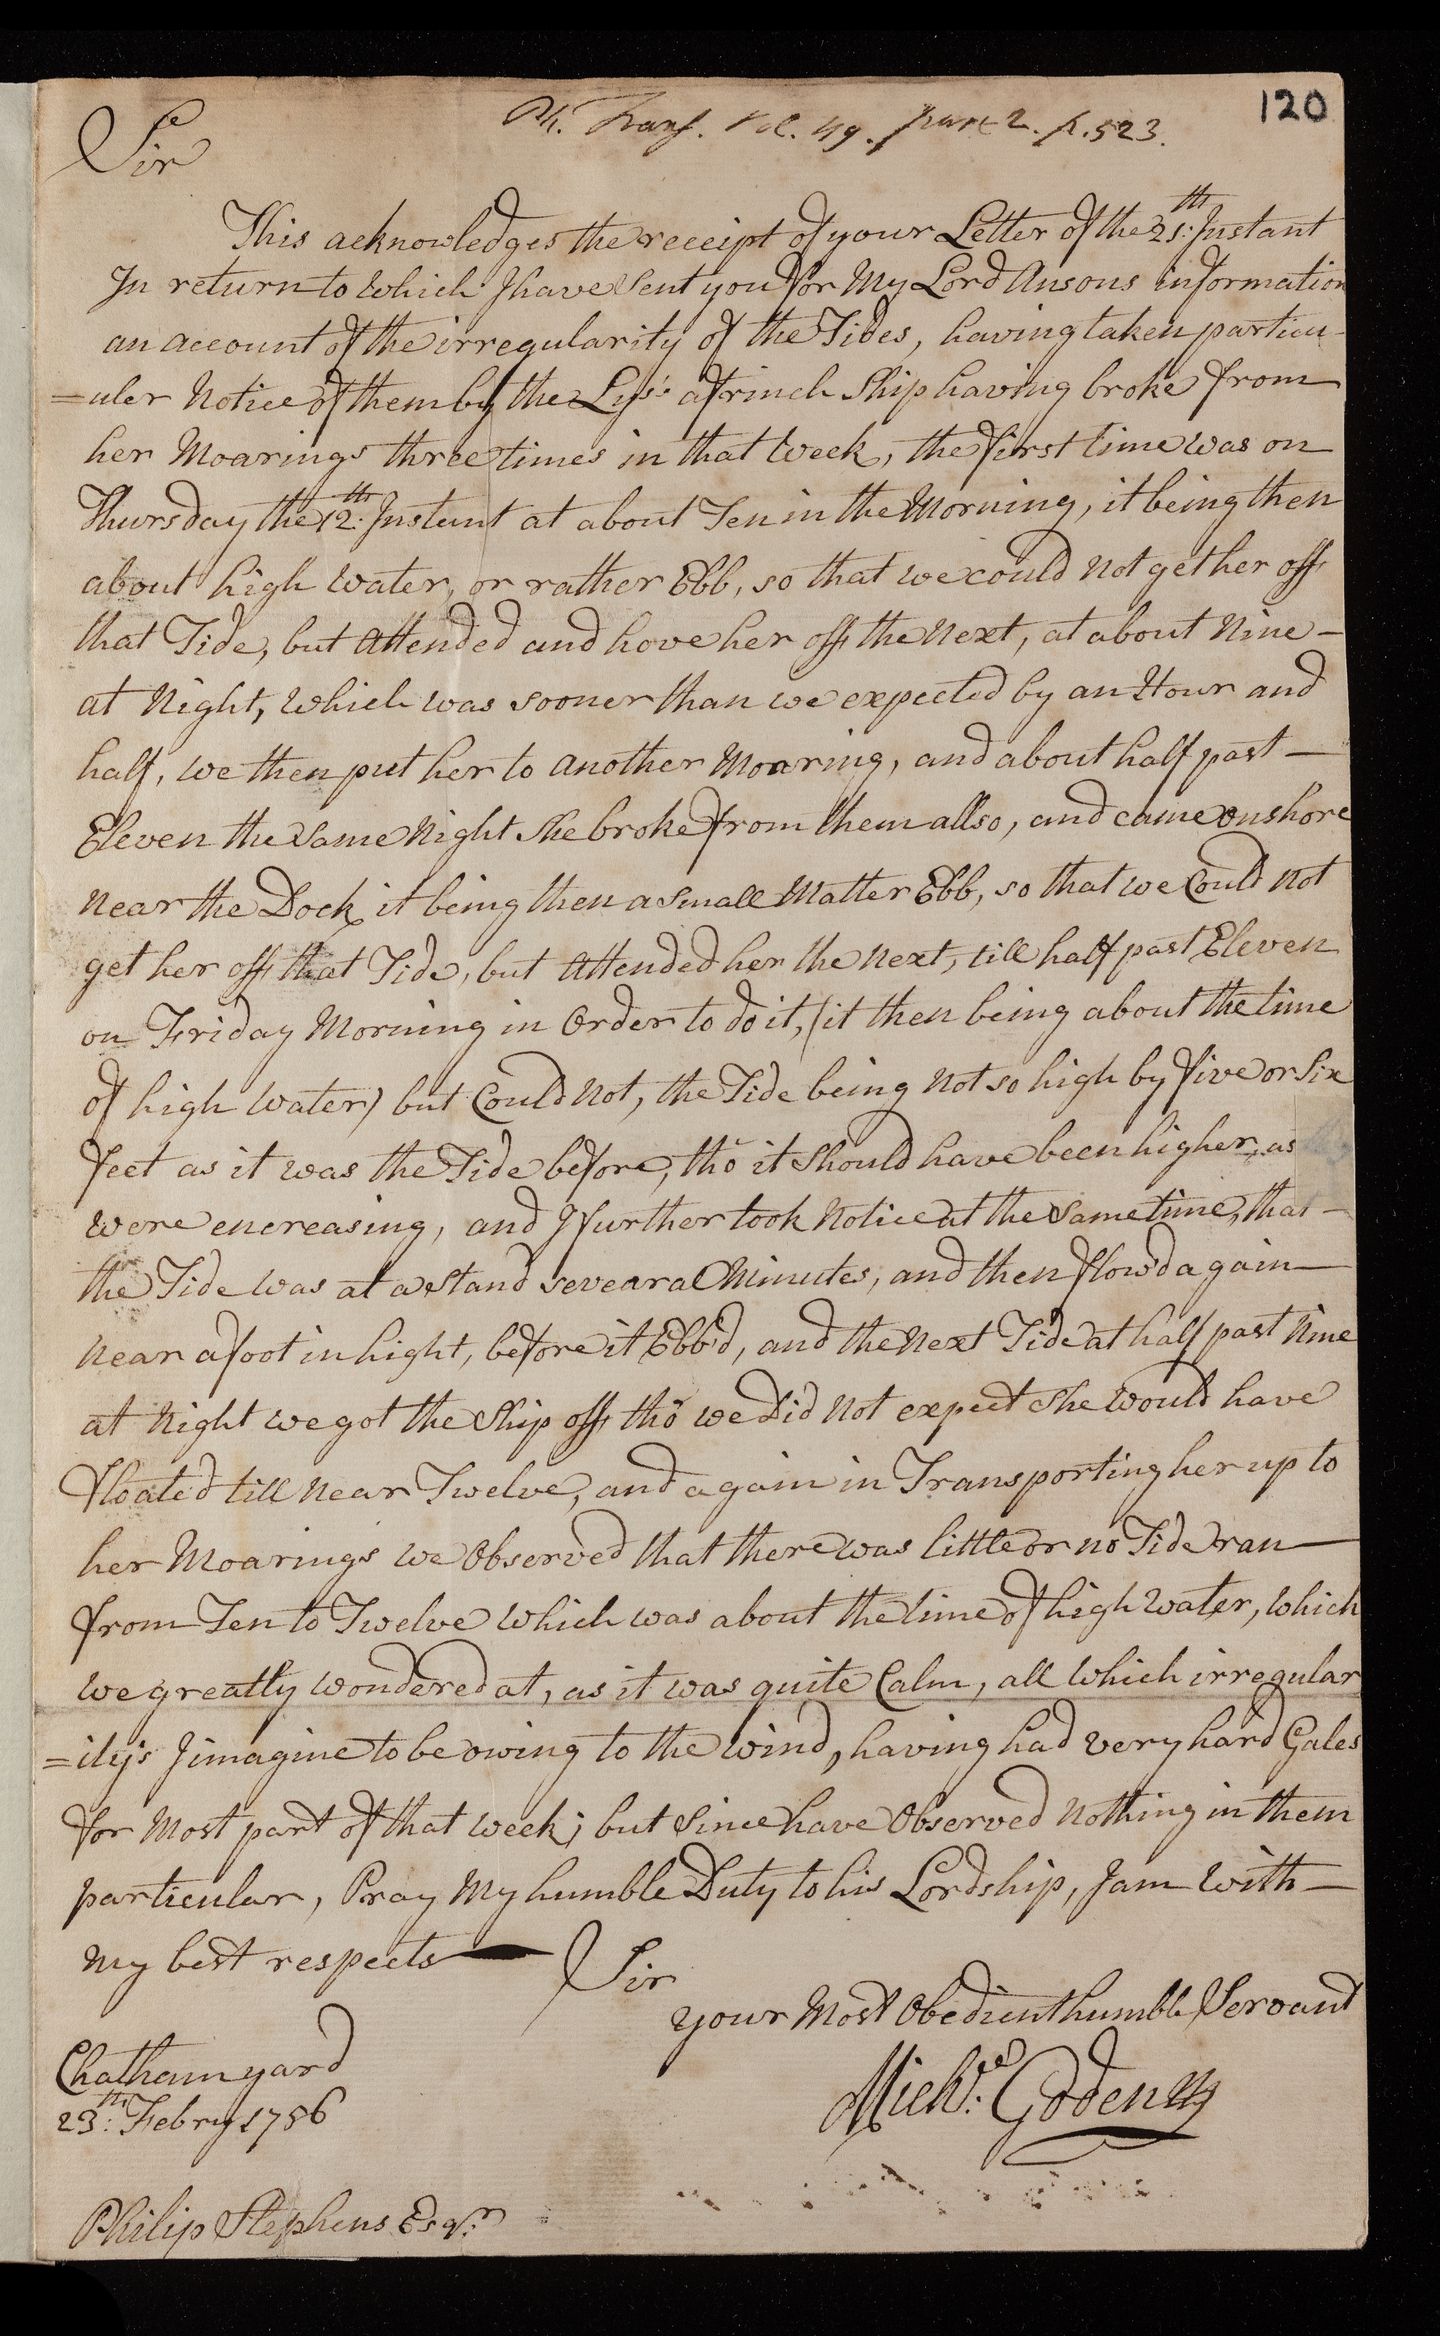 120
Ph. Trans. Vol. 49. part 2. p. 523.
Sir
This acknowledges the receipt of your Letter of the 21:th Instant
In return to which I have Sent you for My Lord Ansons information
an account of the irregularity of the Tides, having taken particu-
=uler Notice of them by the Lys's a french Ship having broke from
her Moarings three times in that Week, the first time was on
Thursday the 12:th Instant at about Ten in the Morning, it being then
about high Water, or rather Ebb, so that we could Not get her off
that Tide, but Attended and hove her off the Next, at about Nine -
at Night, which was sooner than we expected by an Hour and
half, we then put her to another Moaring, and about half past -
Eleven the Same Night She broke from them allso, and came on shore
Near the Dock, it being then a Small Matter Ebb, so that we Could Not
get her off that Tide, but Attended her the Next, till half past Eleven
on Friday Morning in Order to do it, (it then being about the time
of high Water) but Could Not, the Tide being Not so high by five or Six
feet as it was the Tide before, tho it Should have been higher, as
were encreasing, and I further took Notice at the Same time, that -
the Tide was at a Stand sevearal Minutes, and then flow'd again
Near a foot in hight, before it Ebb'd, and the Next Tide at half past Nine
at Night we got the Ship off tho we Did Not expect She Would have
floated till Near Twelve, and again in Transporting her up to
her Moarings we Observed that there was little or no Tide ran
from Ten to Twelve which was about the time of high Water, Which
we greatly wondered at, as it was quite Calm, all which irregular
=itijs I imagine to be owing to the Wind, having had very hard Gales
for Most part of that week; but Since have Observed Nothing in them
particular, Pray My humble Duty to his Lordship, I am With -
My best respects
Sir
Your Most Obedient humble Servant
Chatham yard
23:th Febry 1756
Philip Stephens Esqr: